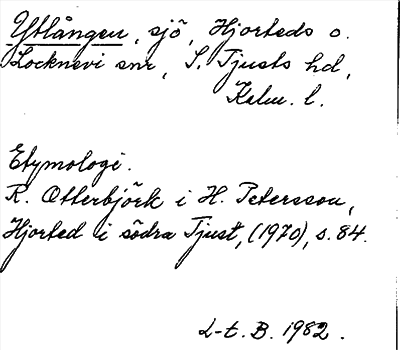 Ytlången, sjö, Hjorteds o.
Locknevi snr, S. Tjusts hd,
Kalm. l.
Etymologi.
R. Otterbjörk i H. Petersson,
Hjorted i södra Tjust, (1970), s. 84.
L-t. B. 1982.